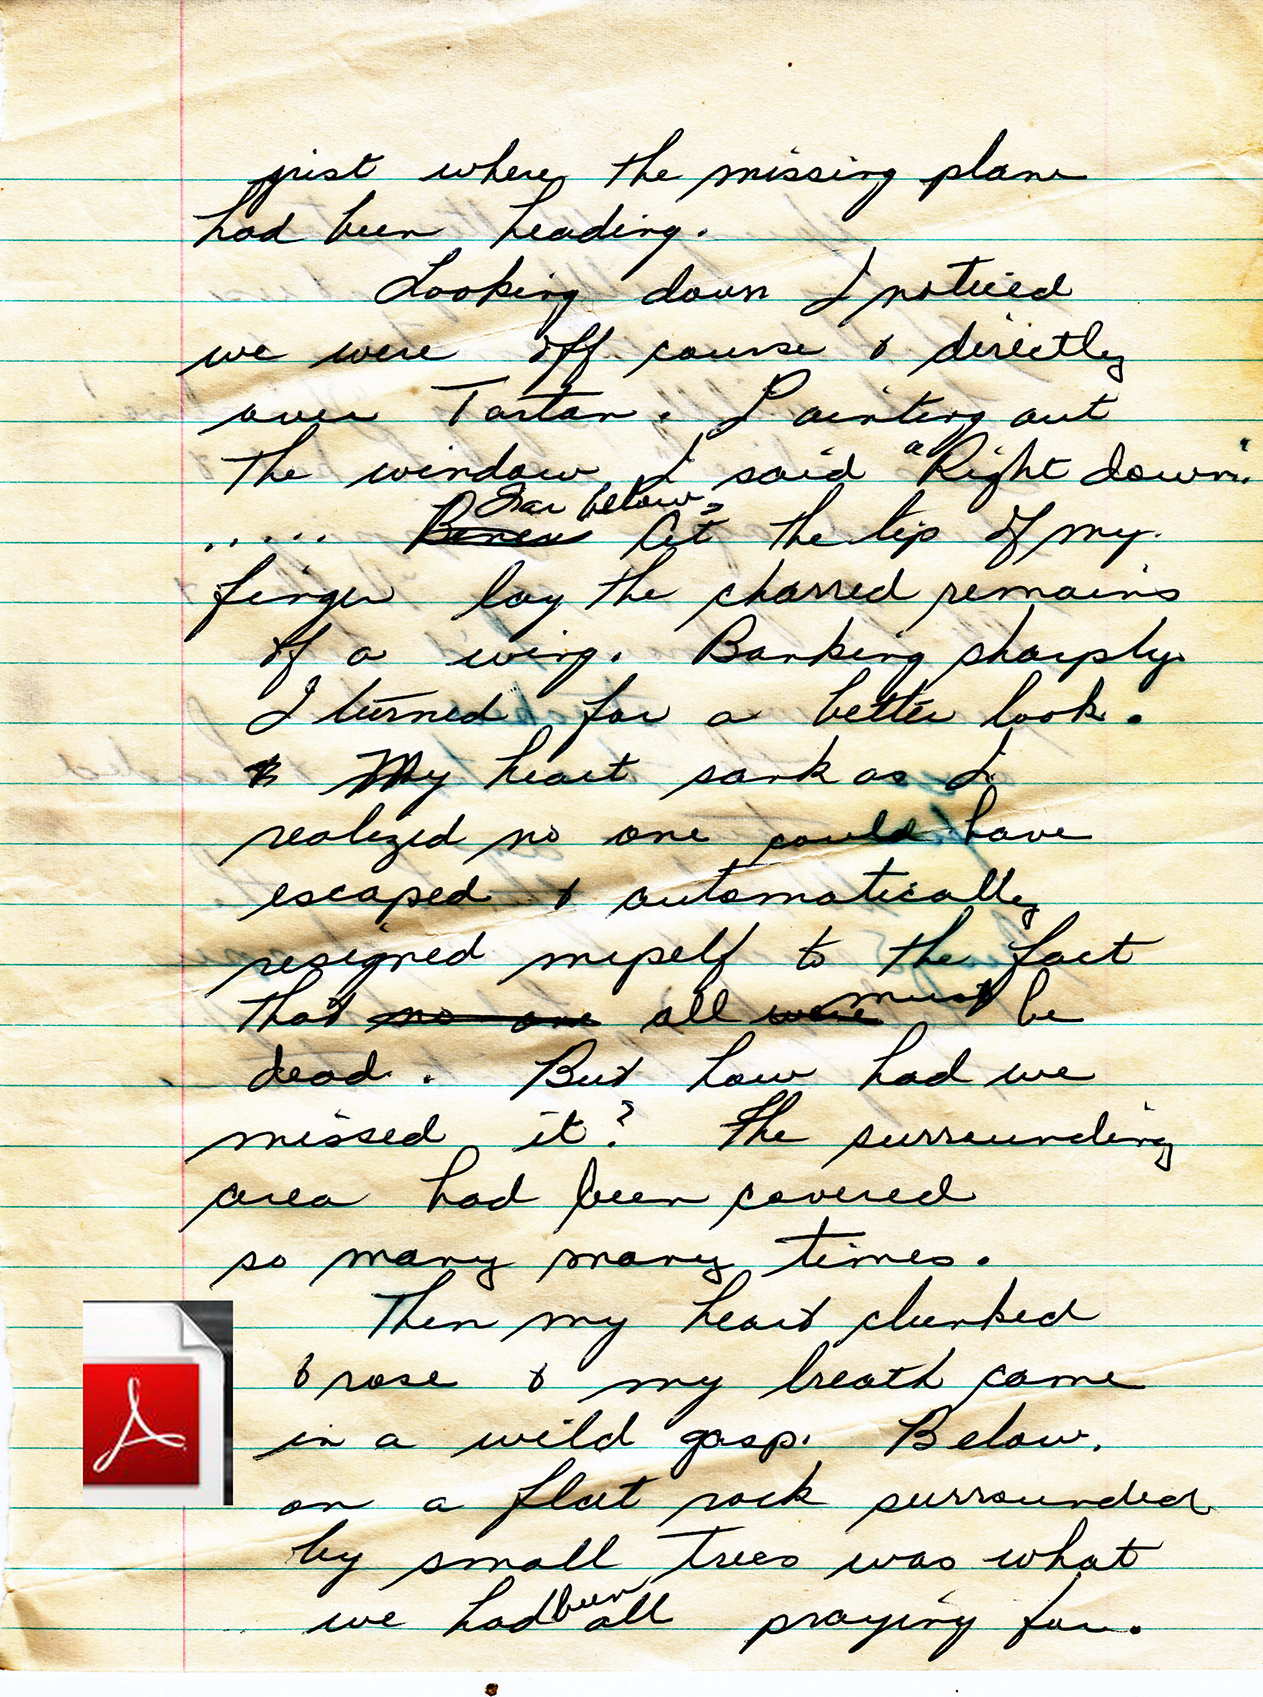 just where the missing plane
had been heading.
Looking down I noticed
we were off course & directly
over Tartan. Pointing out
the window I said "Right down.
..... Far below, At the tip of my
finger lay the charred remains
of a wing. Banking sharply
I turned for a better look.
My heart sank as I
realized no one could have
escaped & automatically
resigned myself to the fact
that no one all were must be
dead. But how had we
missed it? The surrounding
area had been covered
so many many times.
Then my heart clunked
& rose & my breath came
in a wild gasp. Below,
on a flat rock surrounded
by small trees was what
we had been all praying for.